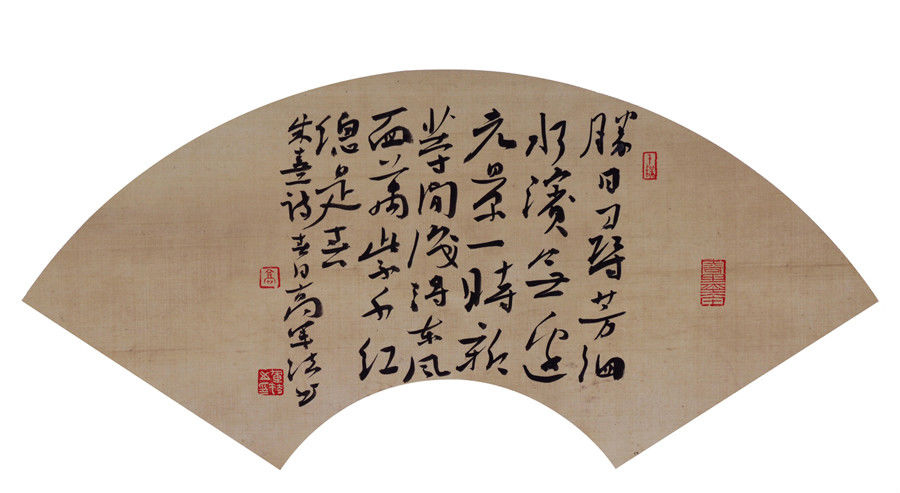 勝日尋芳泗
水濱無邊
光景一時新
等閒識得東風
面萬紫千紅
總是春
朱熹詩春日高軍法書
高